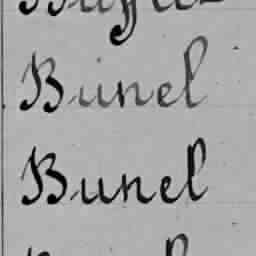 Bunel
Bunel